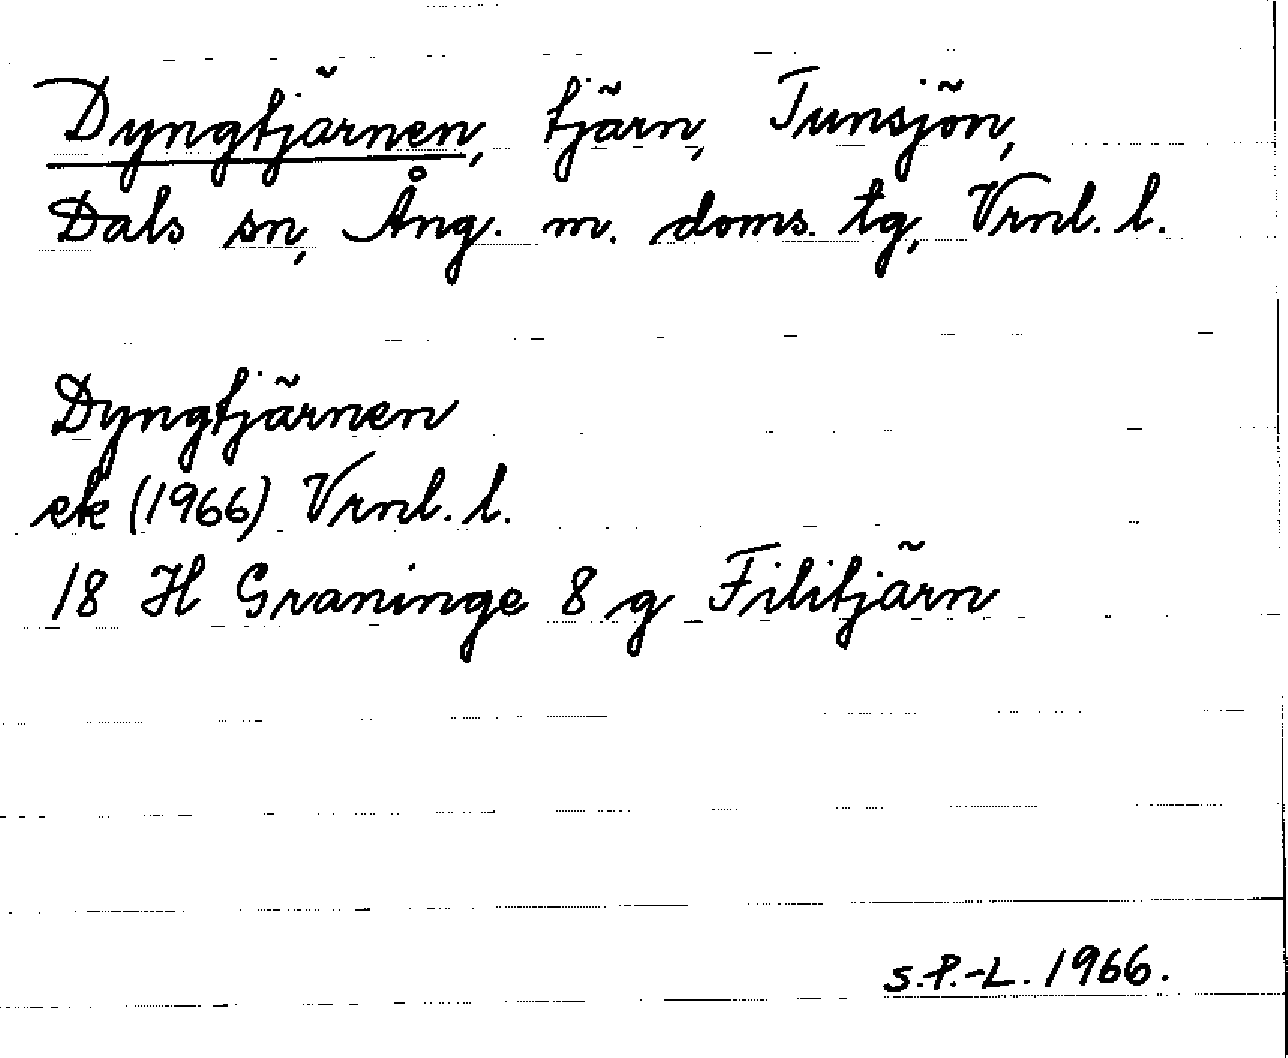 Dyngtjärnen, tjärn, Tunsjön,
Dals sn, Ång. m. doms. tg, Vrnl. l.
Dyngtjärnen
ek (1966) Vrnl. l.
18 H Graninge 8 g Filitjärn
S.P.-L. 1966.